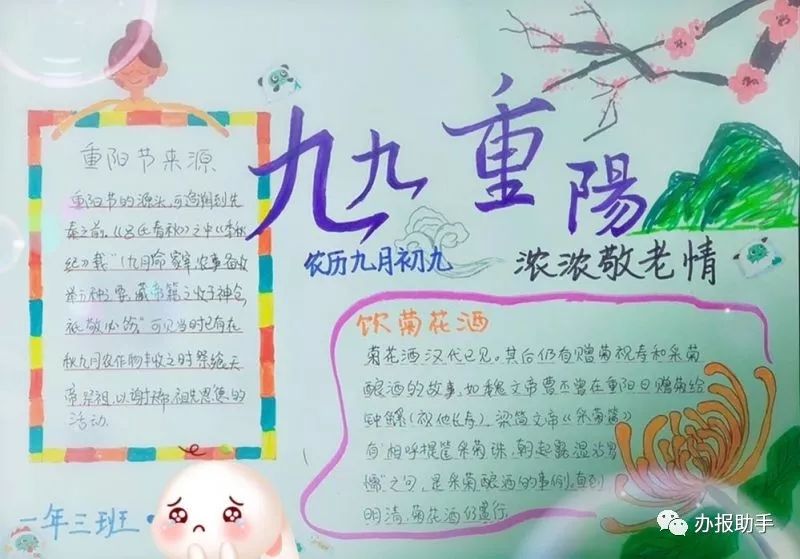 九九重陽
农历九月初九
浓浓敬老情
重阳节来源
重阳节的源头,可追溯到先
秦之前,《吕氏春秋》之中《季秋
纪》载"(九月)命家宰,农事备收
举五种之要,藏帝籍之收于神仓,
祗敬必饬"可见当时已有在
秋九月农作物丰收之时祭飨天
帝、祭祖,以谢天帝、祖先恩德的
活动.
饮菊花酒
菊花酒汉代已见。其后仍有赠菊祝寿和采菊
酿酒的故事,如魏文帝曹丕曾在重阳日赠菊给
钟繇(祝他长寿).梁简文帝《采菊篇》
有"相呼提筐采菊珠,朝起露湿沾罗
襦"之句,是采菊酿酒的事例,直到
明清,菊花酒仍盛行.
一年三班
办报助手